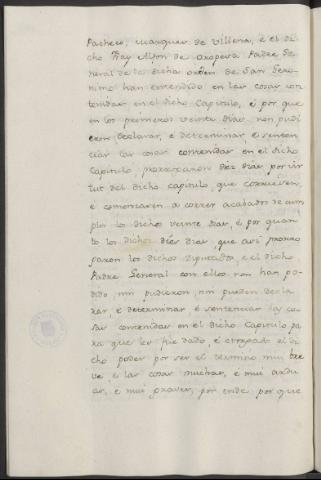 Pacheco, Marques de Villena, é el di-
cho Fray Alfon de Oropesa Padre Ge-
neral de la dicha orden de San Gero-
nimo han entendido en las cosas con-
tenidas en el dicho Capitulo, é por que
en los primeros veinte dias non pudi-
eron declarar, é determinar é senten-
ciar las cosas contenidas en el dicho
Capitulo, prorrogaron diez dias por vir-
tut del dicho capitulo, que corriesen,
é comenzasen a correr acabados de cum-
plir los dichos veinte dias, é por quan-
to los dichos diez dias, que asi prorro-
garon los dichos diputados, é el dicho
Padre General con ellos non han po-
dido, nin pudieron, nin pueden decla-
rar é determinar é sentenciar las co-
sas contenidas en el dicho Capitulo pa-
ra que les fue dado, é otorgado el di-
cho poder por ser el termino mui bre-
ve, é las cosas muchas, é mui ardu-
as, é mui graves, por ende por que